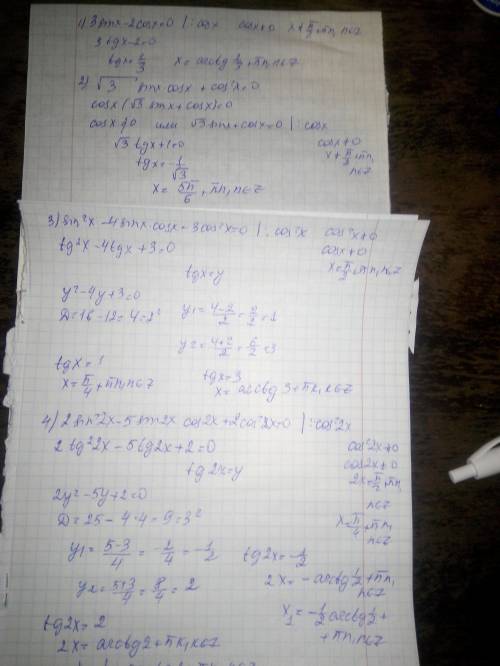 1) 3 sinx - 2cosx = 0 |: cosx   cosx ≠ 0   x ≠ π/2 + πn, n∈Z
3 tgx - 2 = 0
tgx = 2/3   x = arcctg 2/3 + πn, n∈Z
2) √3 sinx cosx + cos²x = 0
cosx (√3 sinx + cosx) = 0
cosx ≠ 0 или √3 sinx + cosx = 0 |: cosx
√3 tgx + 1 = 0   cosx ≠ 0
tgx = -1/√3   x ≠ π/2 + πn,
x = 5π/6 + πn, n∈Z   n∈Z
3) sin²x - 4 sinx cosx + 3cos²x = 0 |: cos²x   cos²x ≠ 0
tg²x - 4tgx + 3 = 0   cosx ≠ 0
tgx = y   x = π/2 + πn, n∈Z
y² - 4y + 3 = 0
D = 16 - 12 = 4 = 2²   y₁ = (4-2)/2 = 2/2 = 1
y₂ = (4+2)/2 = 6/2 = 3
tgx = 1   tgx = 3
x = π/4 + πn, n∈Z   x = arcctg 3 + πk, k∈Z
4) 2 sin²2x - 5 sin2x cos2x + 2cos²2x = 0 |: cos²2x
2 tg²2x - 5tg2x + 2 = 0   cos²2x ≠ 0
tg2x = y   cos2x ≠ 0
2y² - 5y + 2 = 0   2x = π/2 + πn, n∈Z
D = 25 - 4·4 = 9 = 3²   x = π/4 + πn, n∈Z
y₁ = (5-3)/4 = -2/4 = -1/2   tg2x = -1/2
y₂ = (5+3)/4 = 8/4 = 2   2x = -arcctg 1/2 + πn, n∈Z
tg2x = 2   x₁ = -1/2 arcctg 1/2 +
2x = arcctg 2 + πk, k∈Z   + πn, n∈Z